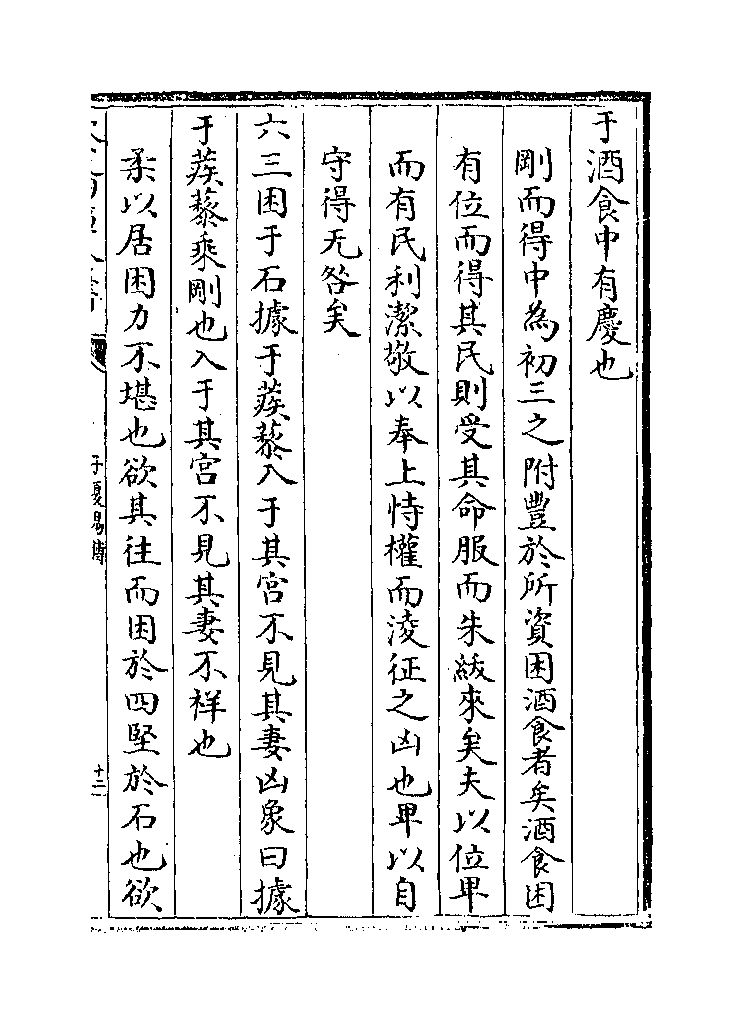 于酒食中有慶也
剛而得中為初三之附豐於所資困酒食者矣酒食困
有位而得其民則受其命服而朱紱來矣夫以位卑
而有民利潔敬以奉上恃權而淩征之凶也卑以自
守得无咎矣
六三困于石據于蒺藜入于其宮不見其妻凶象曰據
于蒺藜乘剛也入于其宮不見其妻不祥也
柔以居困力不堪也欲其往而困於四堅於石也欲
子夏易傳
十二